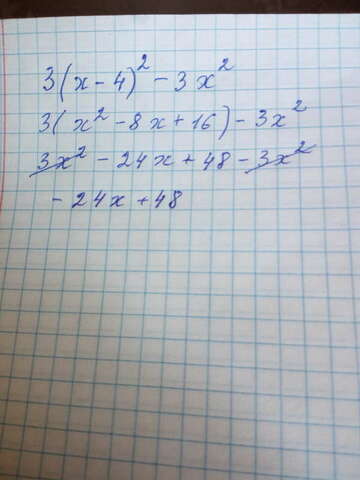 3(x - 4)² - 3x²
3(x² - 8x + 16) - 3x²
3x² - 24x + 48 - 3x²
- 24x + 48